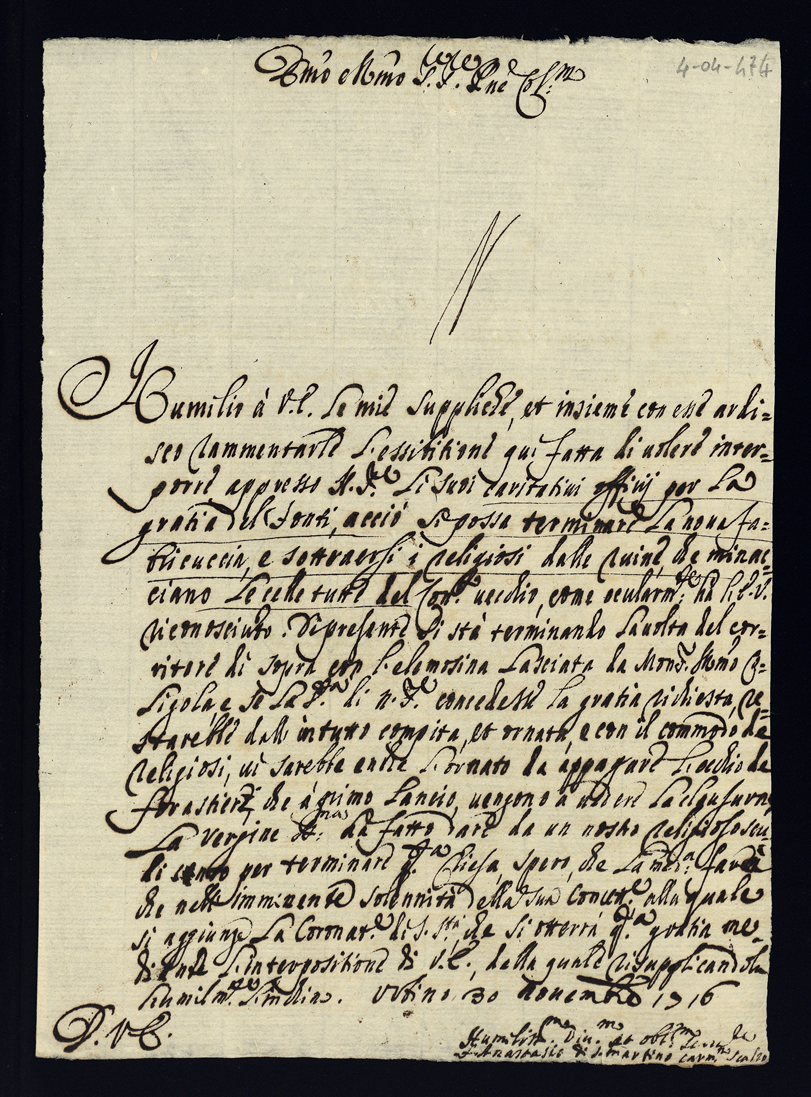 Emo e Rmo S.r S.r Pne Col.mo
4-04-474
N
Humilio à V.E. le mie suppliche, et insieme con esse ardi=
sco rammentarle l'essibitione qui fatta di volere inter=
porre appresso N. S.re li suoi caritativi officij per la
gratia del Conti, acciò si possa terminare la nova fa=
bricuccia, e sottraersi i religiosi dalle ruine, che minac=
ciano le celle tutte del Con.to vecchio, come ocularm.te hà l'E.V.
riconosciuto. Di presente si stà terminando la volta del cor=
ritore di sopra con l'elemosina lasciata da Mons.r
e se la di N. S.re concedesse la gratia richiesta, re=
starebbe dall' intutto compita, et ornata, e con il commodo de
religiosi, vi sarebbe anche l'ornato da appagare l'occhio de
forastieri, che à primo lancio vengono à vedere
La Vergine S.ma hà fatto dare da un nostro religioso scu=
di cento per terminare q.ta Chiesa, spero, che la med.a farà
che nell' imminente solennità della sua Concett.e alla quale
si aggiunge la Coronat.e di S. S.tà, che si otterrà q.ta gratia me=
diante l'interpositione di V.E., della quale risupplicandola
humilm.te l'inchino. Urbino 30 Novembre 1716
D. V.E.
Humiliss.mo Div.mo et obl.mo Ser.re
F. Anastasio di S. Martino carm.no scalzo